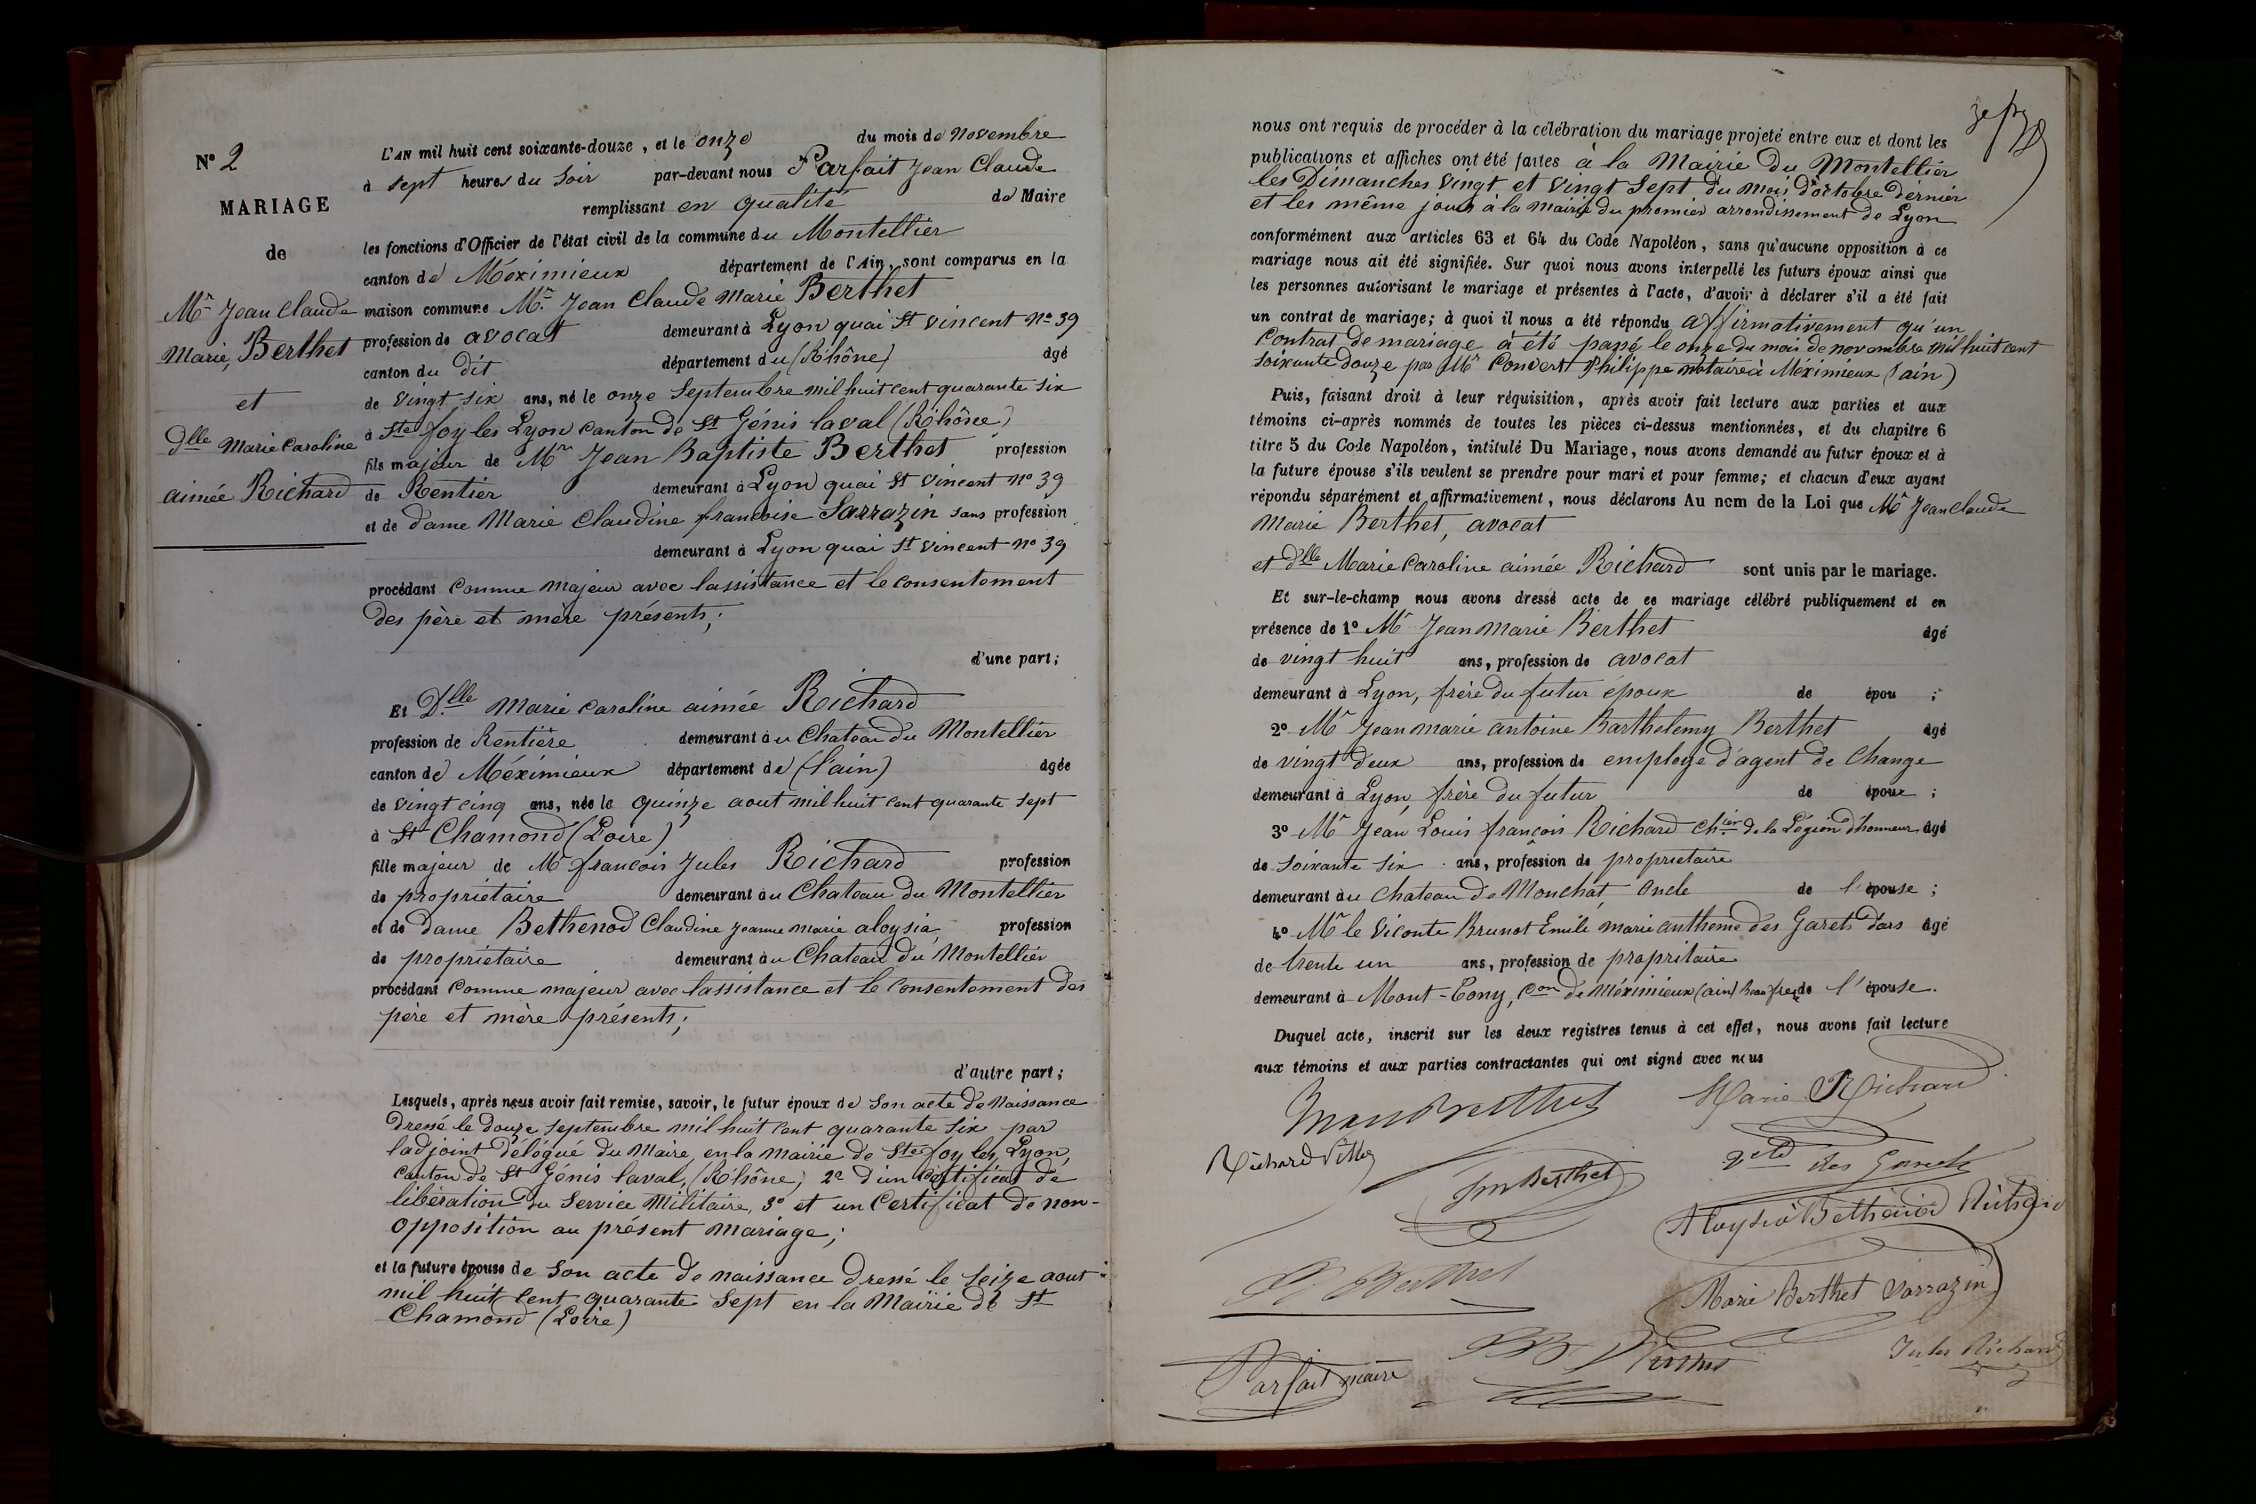 N° 2
MARIAGE
de
Mr Jean Claude
Marie, Berthet
et
dlle Marie Caroline
aimée Richard
L'AN mil huit cent soixante-douze, et le onze du mois de Novembre
à sept heures du Soir par-devant nous Parfait Jean Claude
remplissant en qualité de Maire
les fonctions d'Officier de l'état civil de la commune du Montellier
canton de Méximieux département de l'Ain, sont comparus en la
maison commune Mr Jean Claude Marie Berthet
profession de avocat demeurant à Lyon quai St Vincent No 39
canton du dit département du (Rhône) âgé
de Vingt six ans, né le onze Septembre mil huit cent quarante six
à Ste foy les Lyon Canton de St Génis laval (Rhône)
fils majeur de Mr Jean Baptiste Berthet profession
de Rentier demeurant à Lyon quai St Vincent no 39
et de dame Marie Claudine francoise Sarrazin sans profession
demeurant à Lyon quai St Vincent no 39
procédant comme majeur avec lassistance et le consentement
des père et mère présents;
d'une part;
Et Dlle Marie Caroline aimée Richard
profession de Rentière demeurant au Chateau du Montellier
canton de Méximieux département de (l'ain) âgée
de vingt cinq ans, née le quinze aout mil huit cent quarante sept
à St Chamond (Loire)
fille majeur de Mr francois Jules Richard profession
de propriétaire demeurant au Chateau du Montellier
et de dame Bethenod Claudine Jeanne Marie aloysia, profession
de propriétaire demeurant au Chateau du Montellier
procédant comme majeur avec lassistance et le consentement des
père et mère présents;
d'autre part;
Lesquels, après nous avoir fait remise, savoir, le futur époux de Son acte de Naissance
dressé le douze septembre mil huit cent quarante six par
ladjoint délégué du Maire, en la mairie de Ste foy les Lyon,
Canton de St Génis laval, (Rhône) 2° d'un Certificat de
libération du Service Militaire, 3° et un Certificat de non-
opposition au présent mariage;
et la future épouse de Son acte de naissance dressé le seize aout
mil huit cent quarante Sept en la Mairie de St
Chamond (Loire)
nous ont requis de procéder à la célébration du mariage projeté entre eux et dont les
publications et affiches ont été faites à la Mairie du Montellier
les Dimanches Vingt et Vingt Sept du mois d'octobre dernier
et les même jours à la mairie du premier arrondissement de Lyon
conformément aux articles 63 et 64 du Code Napoléon, sans qu'aucune opposition à ce
mariage nous ait été signifiée. Sur quoi nous avons interpellé les futurs époux ainsi que
les personnes autorisant le mariage et présentes à l'acte, d'avoir à déclarer s'il a été fait
un contrat de mariage; à quoi il nous a été répondu affirmativement qu'un
Contrat de mariage à été passé le onze du mois de novembre mil huit cent
soixante douze par Mr Convert Philippe notaire à Méximieux (ain)
Puis, faisant droit à leur réquisition, après avoir fait lecture aux parties et aux
témoins ci-après nommés de toutes les pièces ci-dessus mentionnées, et du chapitre 6
titre 5 du Code Napoléon, intitulé Du Mariage, nous avons demandé au futur époux et à
la future épouse s'ils veulent se prendre pour mari et pour femme; et chacun d'eux ayant
répondu séparément et affirmativement, nous déclarons Au nom de la Loi que Mr Jean Claude
Marie Berthet, avocat
et dlle Marie Caroline aimée Richard sont unis par le mariage.
Et sur-le-champ nous avons dressé acte de ce mariage célébré publiquement et en
présence de 1° Mr Jean Marie Berthet âgé
de vingt huit ans, profession de avocat
demeurant à Lyon, frère du futur époux de épou ;
2° Mr Jean marie antoine Barthelemy Berthet âgé
de vingt deux ans, profession de employé d'agent de Change
demeurant à Lyon, frère du futur de époux ;
3° Mr Jean Louis françois Richard chier de la Légion d'honneur âgé
de soixante six ans, profession de propriétaire
demeurant au chateau de Monchat, Oncle de l'épouse ;
4° Mr le Viconte Brunot Emile marie antheme des Garets dars âgé
de trente un ans, profession de propritaire
demeurant à Mont-Cony, Con de Méximieux (ain) Beau frere de l'épouse.
Duquel acte, inscrit sur les deux registres tenus à cet effet, nous avons fait lecture
aux témoins et aux parties contractantes qui ont signé avec nous
Marie Richard
Richard Vitton
Jm Berthet
Vcte des Garets
Aloysia Bethenod Richard
Berthet
Marie Berthet Sarrazin
Jules Richard
Parfait maire